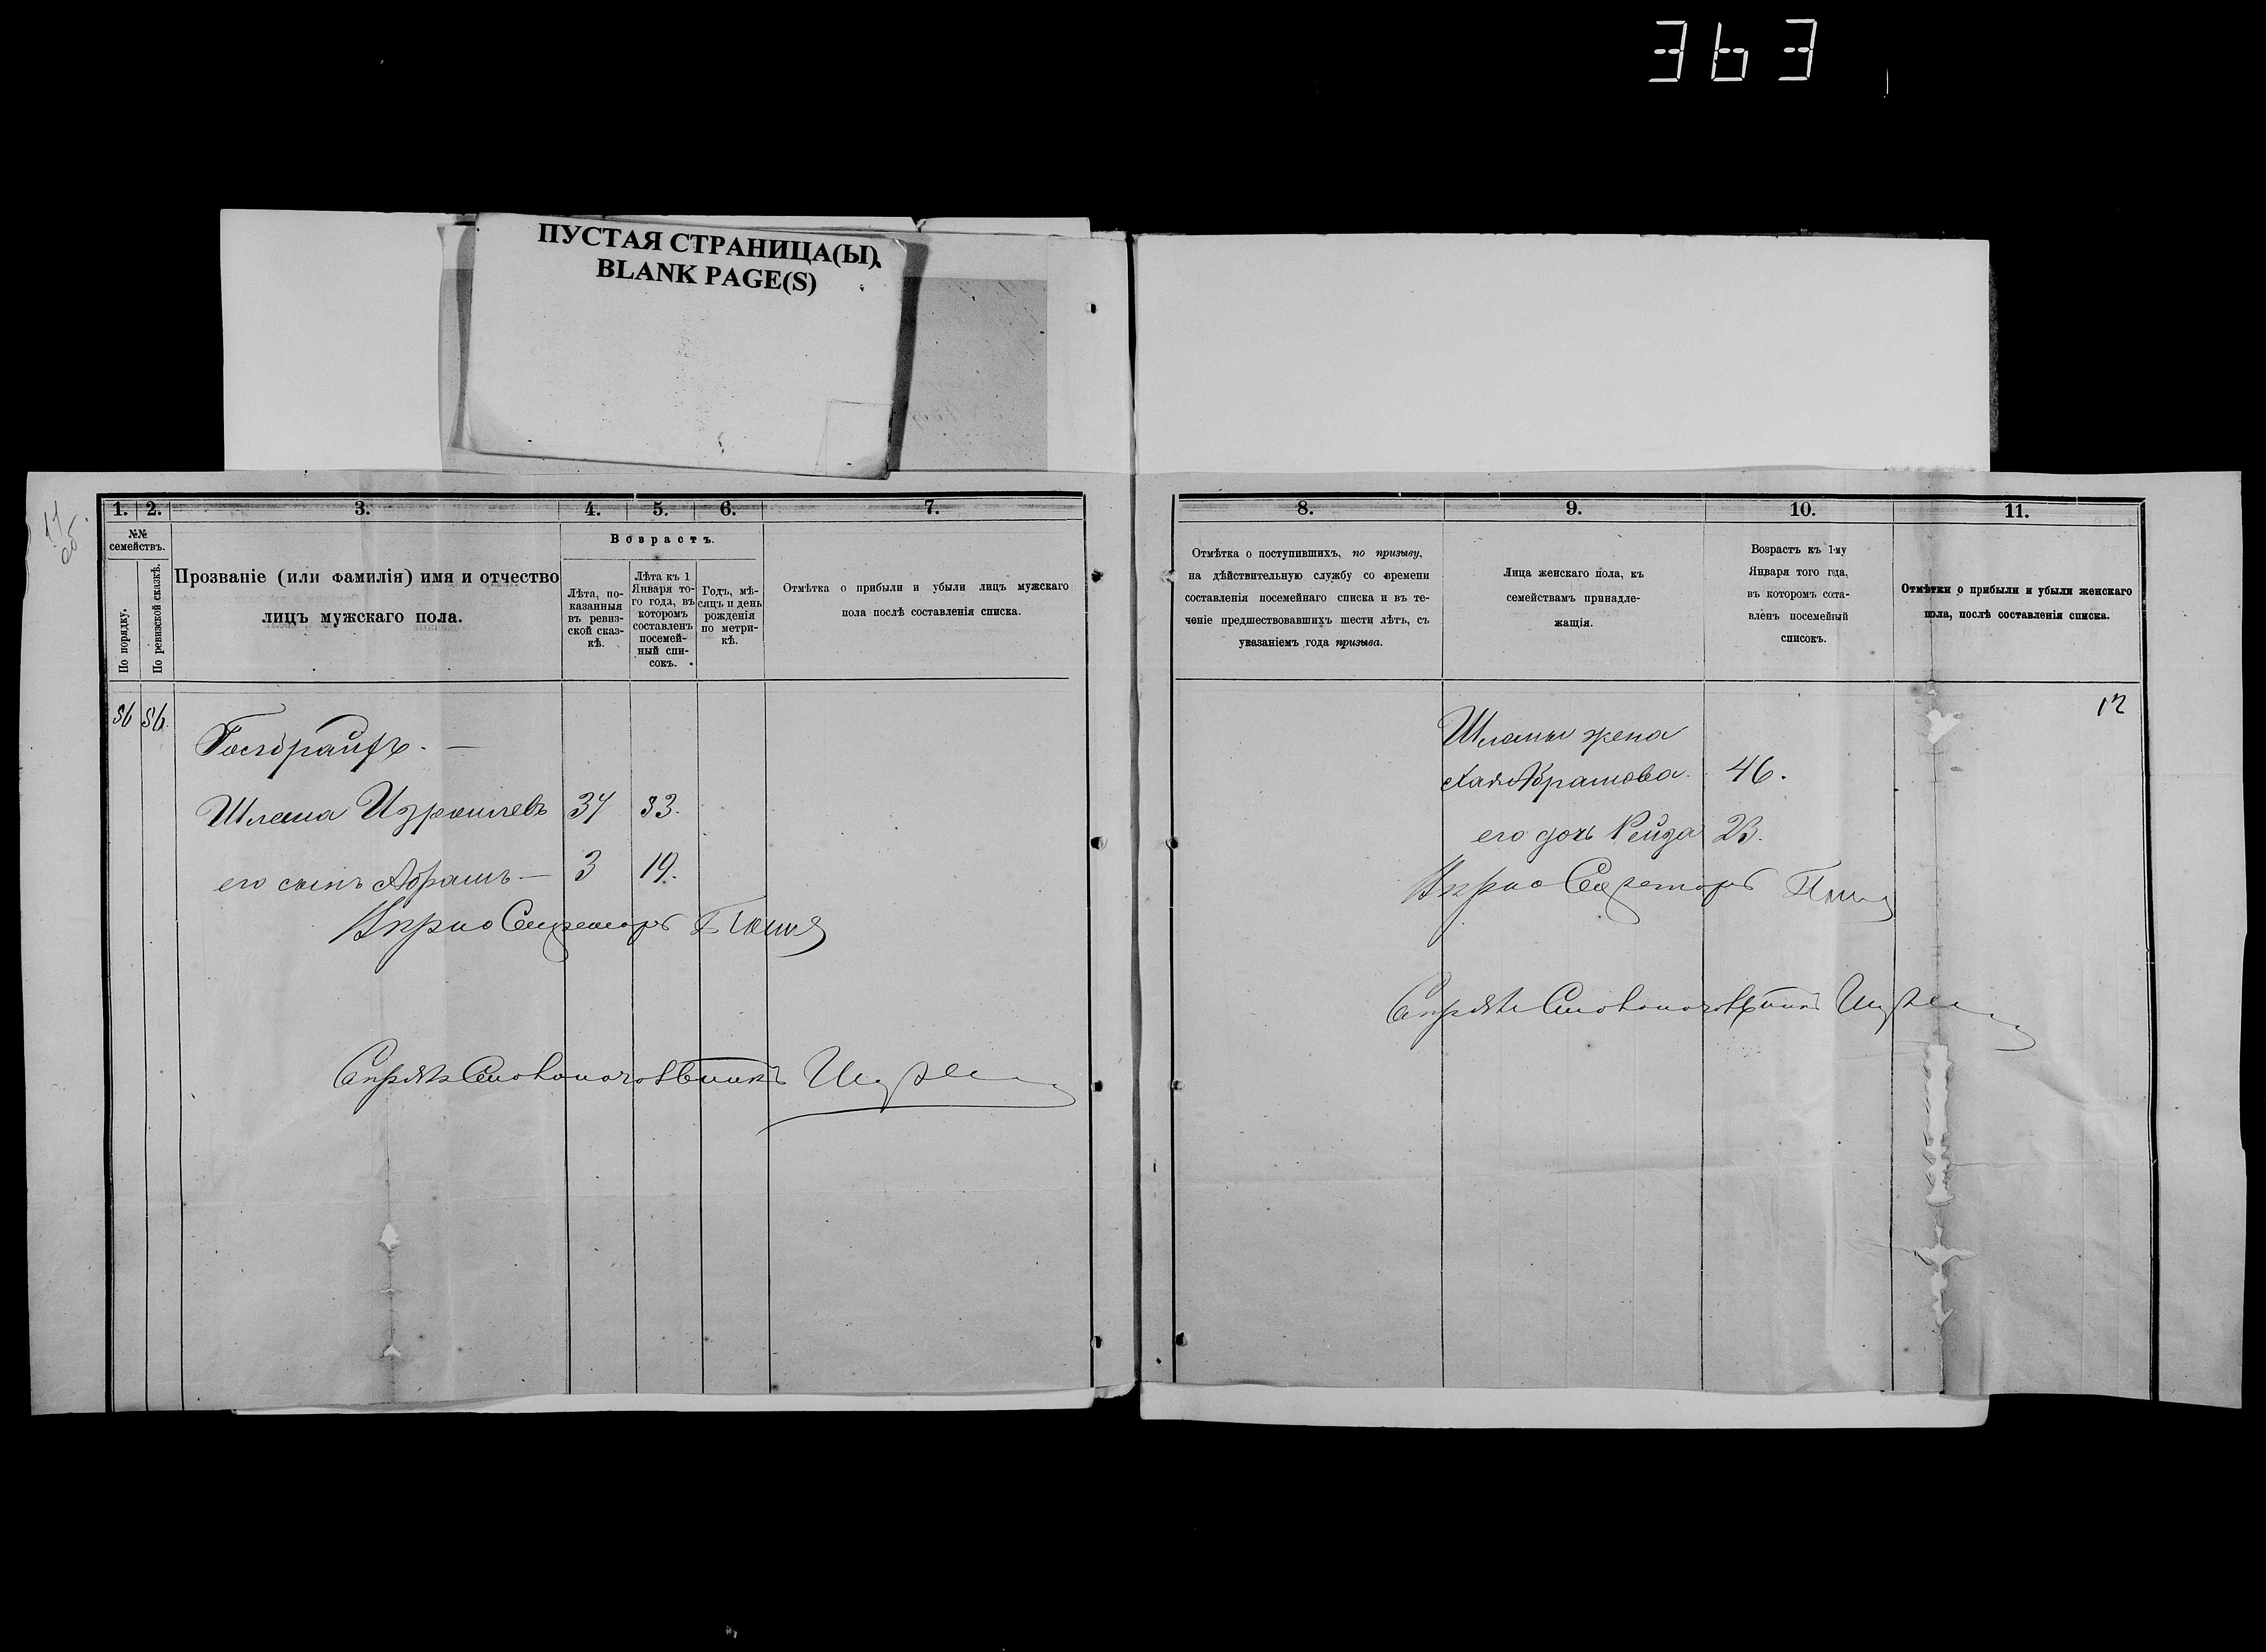 363
ПУСТАЯ СТРАНИЦА(Ы)
BLANK PAGE(S)
1. 2. 3. 4. 5. 6. 7.
№№ семействъ.
По порядку.
По ревизской сказкѣ.
Прозваніе (или фамилія) имя и отчество
лицъ мужскаго пола.
Возрастъ.
Лѣта, по-
казанныя
въ ревиз-
ской сказ-
кѣ.
Лѣта къ 1
Января то-
го года, въ
которомъ
составленъ
посемей-
ный спи-
сокъ.
Годъ, мѣ-
сяцъ и день
рожденія
по метри-
кѣ.
Отмѣтка о прибыли и убыли лицъ мужскаго
пола послѣ составленія списка.
Шлема Израилевъ 37
его сынъ Абрамъ — 3 19.
Секретарь
8. 9. 10. 11.
Отмѣтка о поступившихъ, по призыву,
на дѣйствительную службу со времени
составленія посемейнаго списка и въ те-
ченіе предшествовавшихъ шести лѣтъ, съ
указаніемъ года призыва.
Лица женскаго пола, къ
семействамъ принадле-
жащія.
Возрастъ къ 1-му
Января того года,
въ которомъ соста-
вленъ посемейный
списокъ.
Отмѣтки о прибыли и убыли женскаго
пола, послѣ составленія списка.
12
Шлемы жена
Хая Абрамова 46.
его дочь Рейза 23.
Секретарь